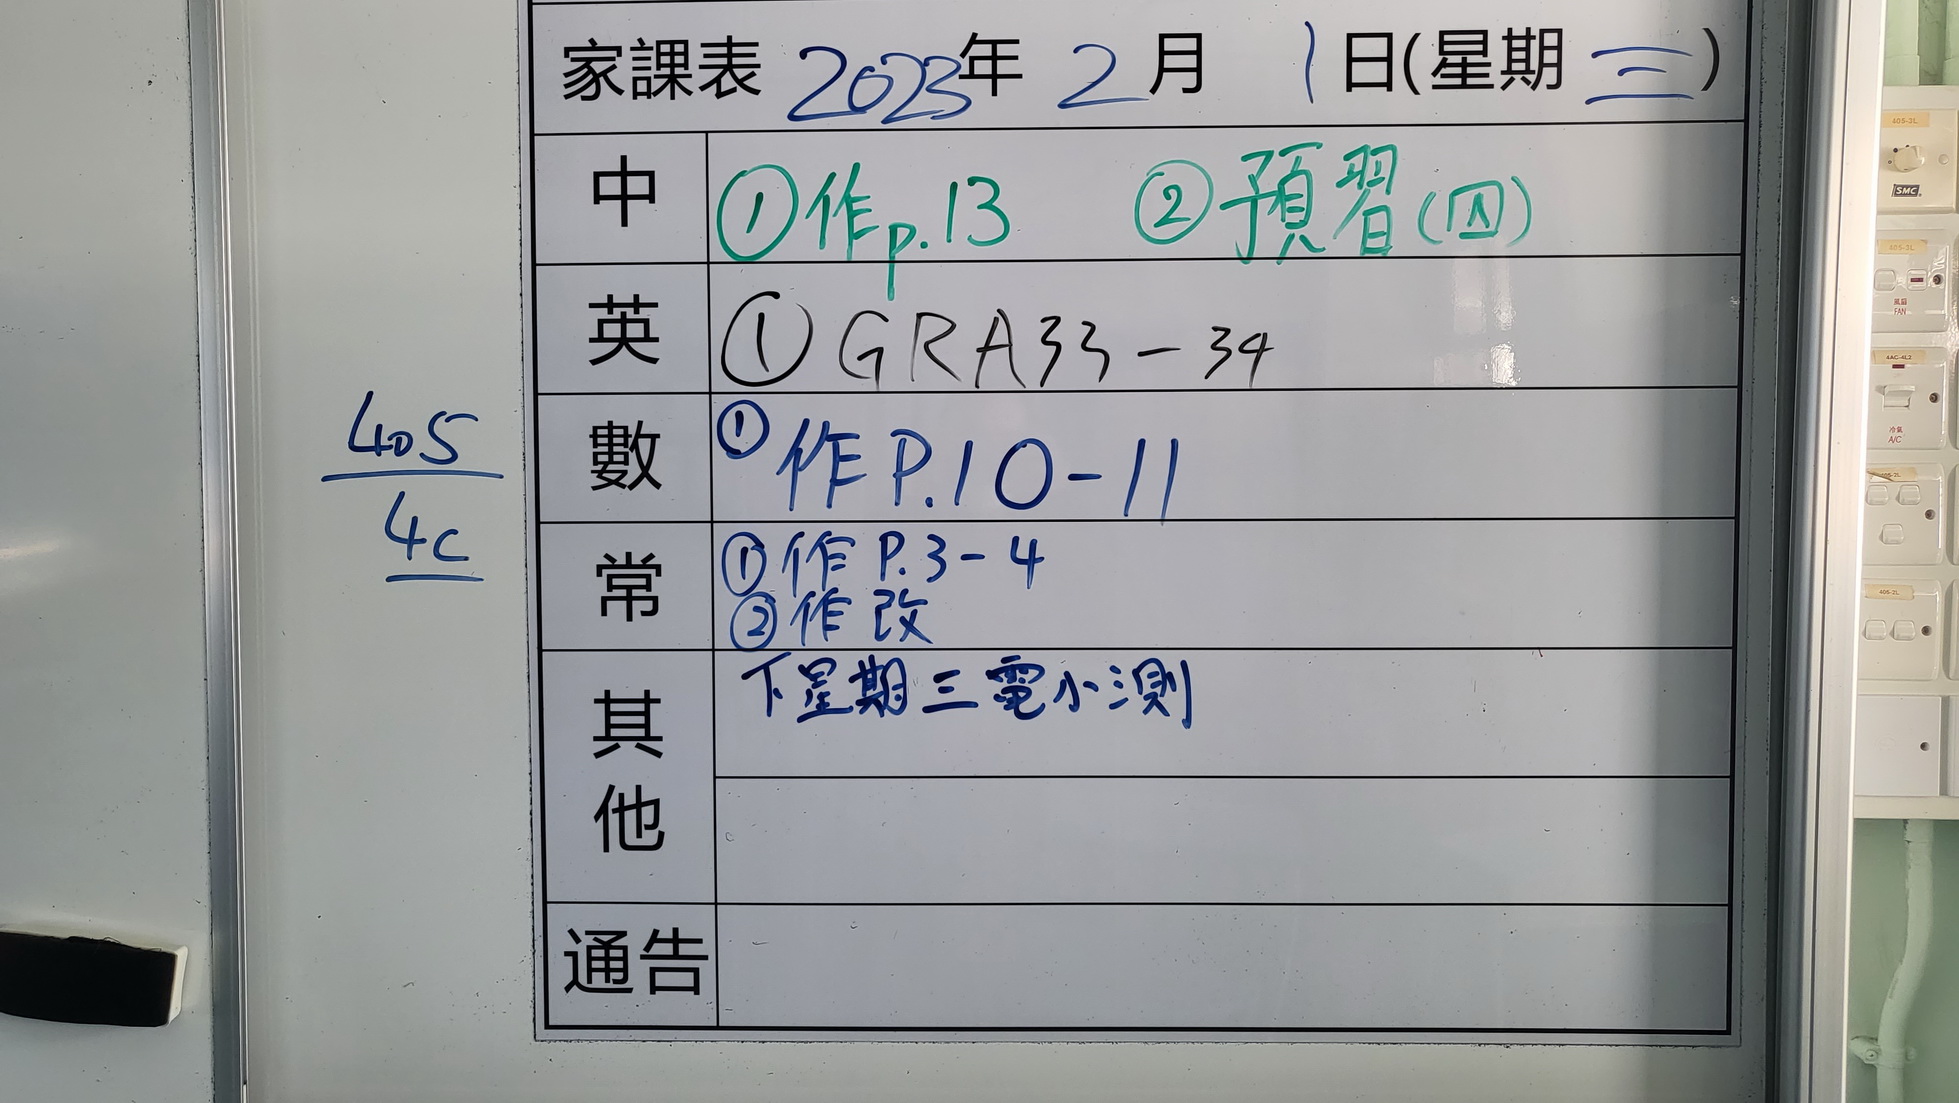 家課表 2023年 2月 1日(星期三)
中 ①作p.13 ②預習(四)
英 ①GRA33-34
數 ①作P.10-11
常 ①作P.3-4
②作改
其他 下星期三電小測
通告
405
4C
405-3L
SMC
405-3L
風扇
FAN
4AC-4L2
冷氣
A/C
405-2L